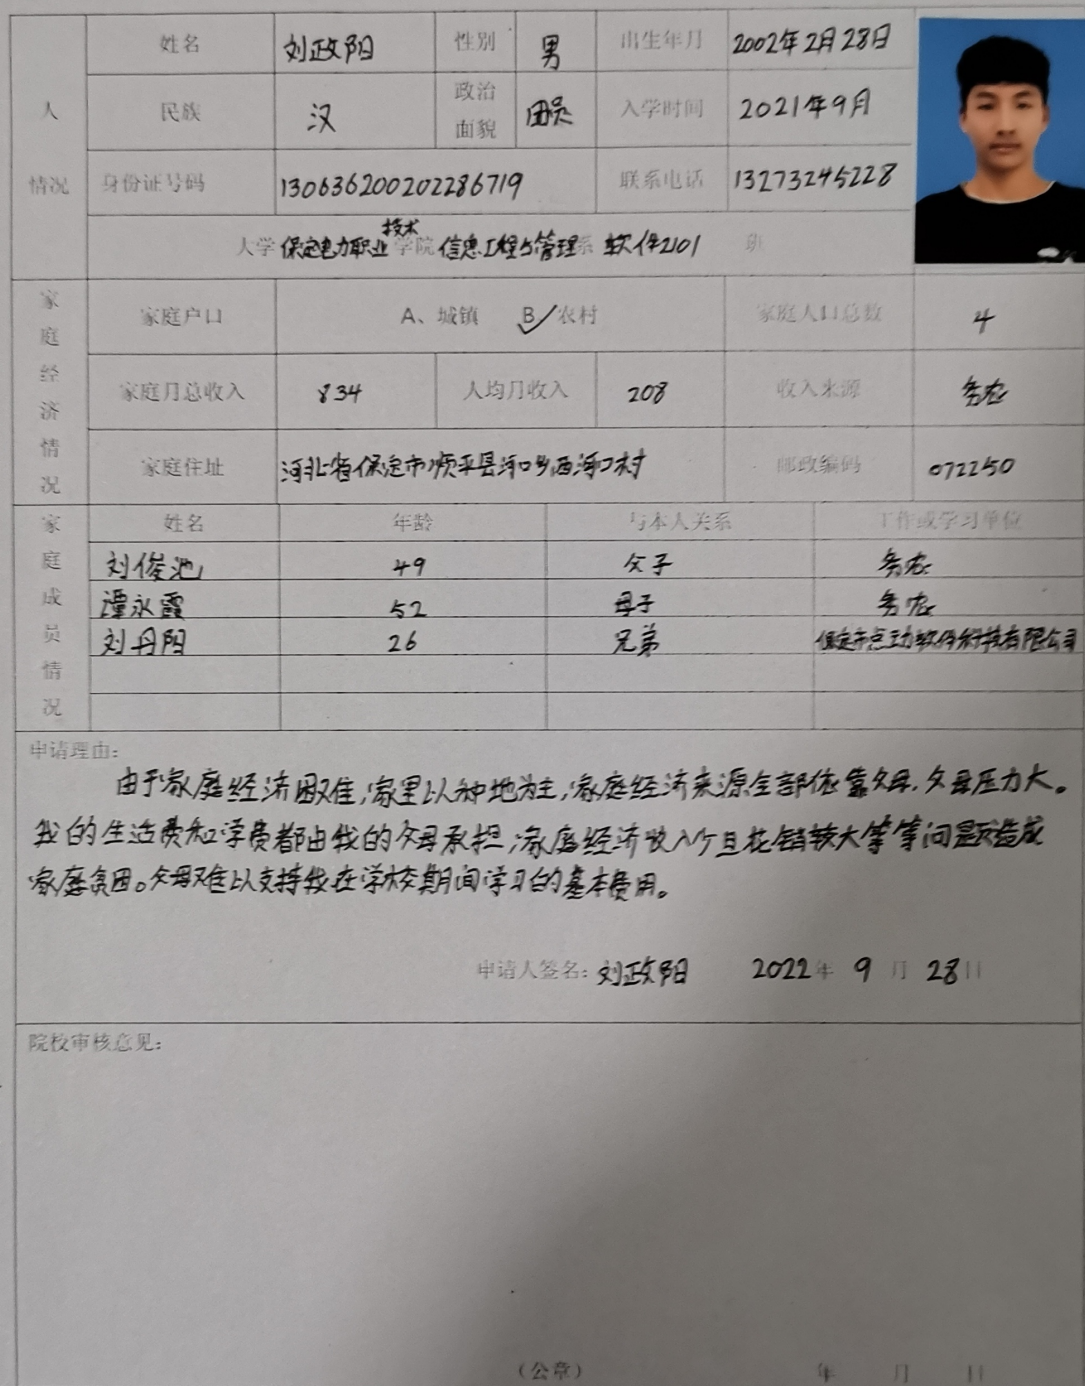 姓名 刘政阳 性别 男 出生年月 2002年2月28日
人 民族 汉 政治面貌 团员 入学时间 2021年9月
情况 身份证号码 130636200202286719 联系电话 13273245228
大学 保定电力职业技术学院 信息工程与管理系 软件2101 班
家庭经济情况
家庭户口 A、城镇 B✓农村 家庭人口总数 4
家庭月总收入 834 人均月收入 208 收入来源 务农
家庭住址 河北省保定市顺平县河口乡西河口村 邮政编码 072250
家庭成员情况
姓名 年龄 与本人关系 工作或学习单位
刘俊池 49 父子 务农
谭永霞 52 母子 务农
刘丹阳 26 兄弟 保定市点主力软件科技有限公司
申请理由:
由于家庭经济困难,家里以种地为主,家庭经济来源全部依靠父母,父母压力大。
我的生活费和学费都由我的父母承担,家庭经济收入少且花销较大等等问题造成
家庭贫困。父母难以支持我在学校期间学习的基本费用。
申请人签名: 刘政阳 2022年 9 月 28日
院校审核意见:
(公章) 年 月 日